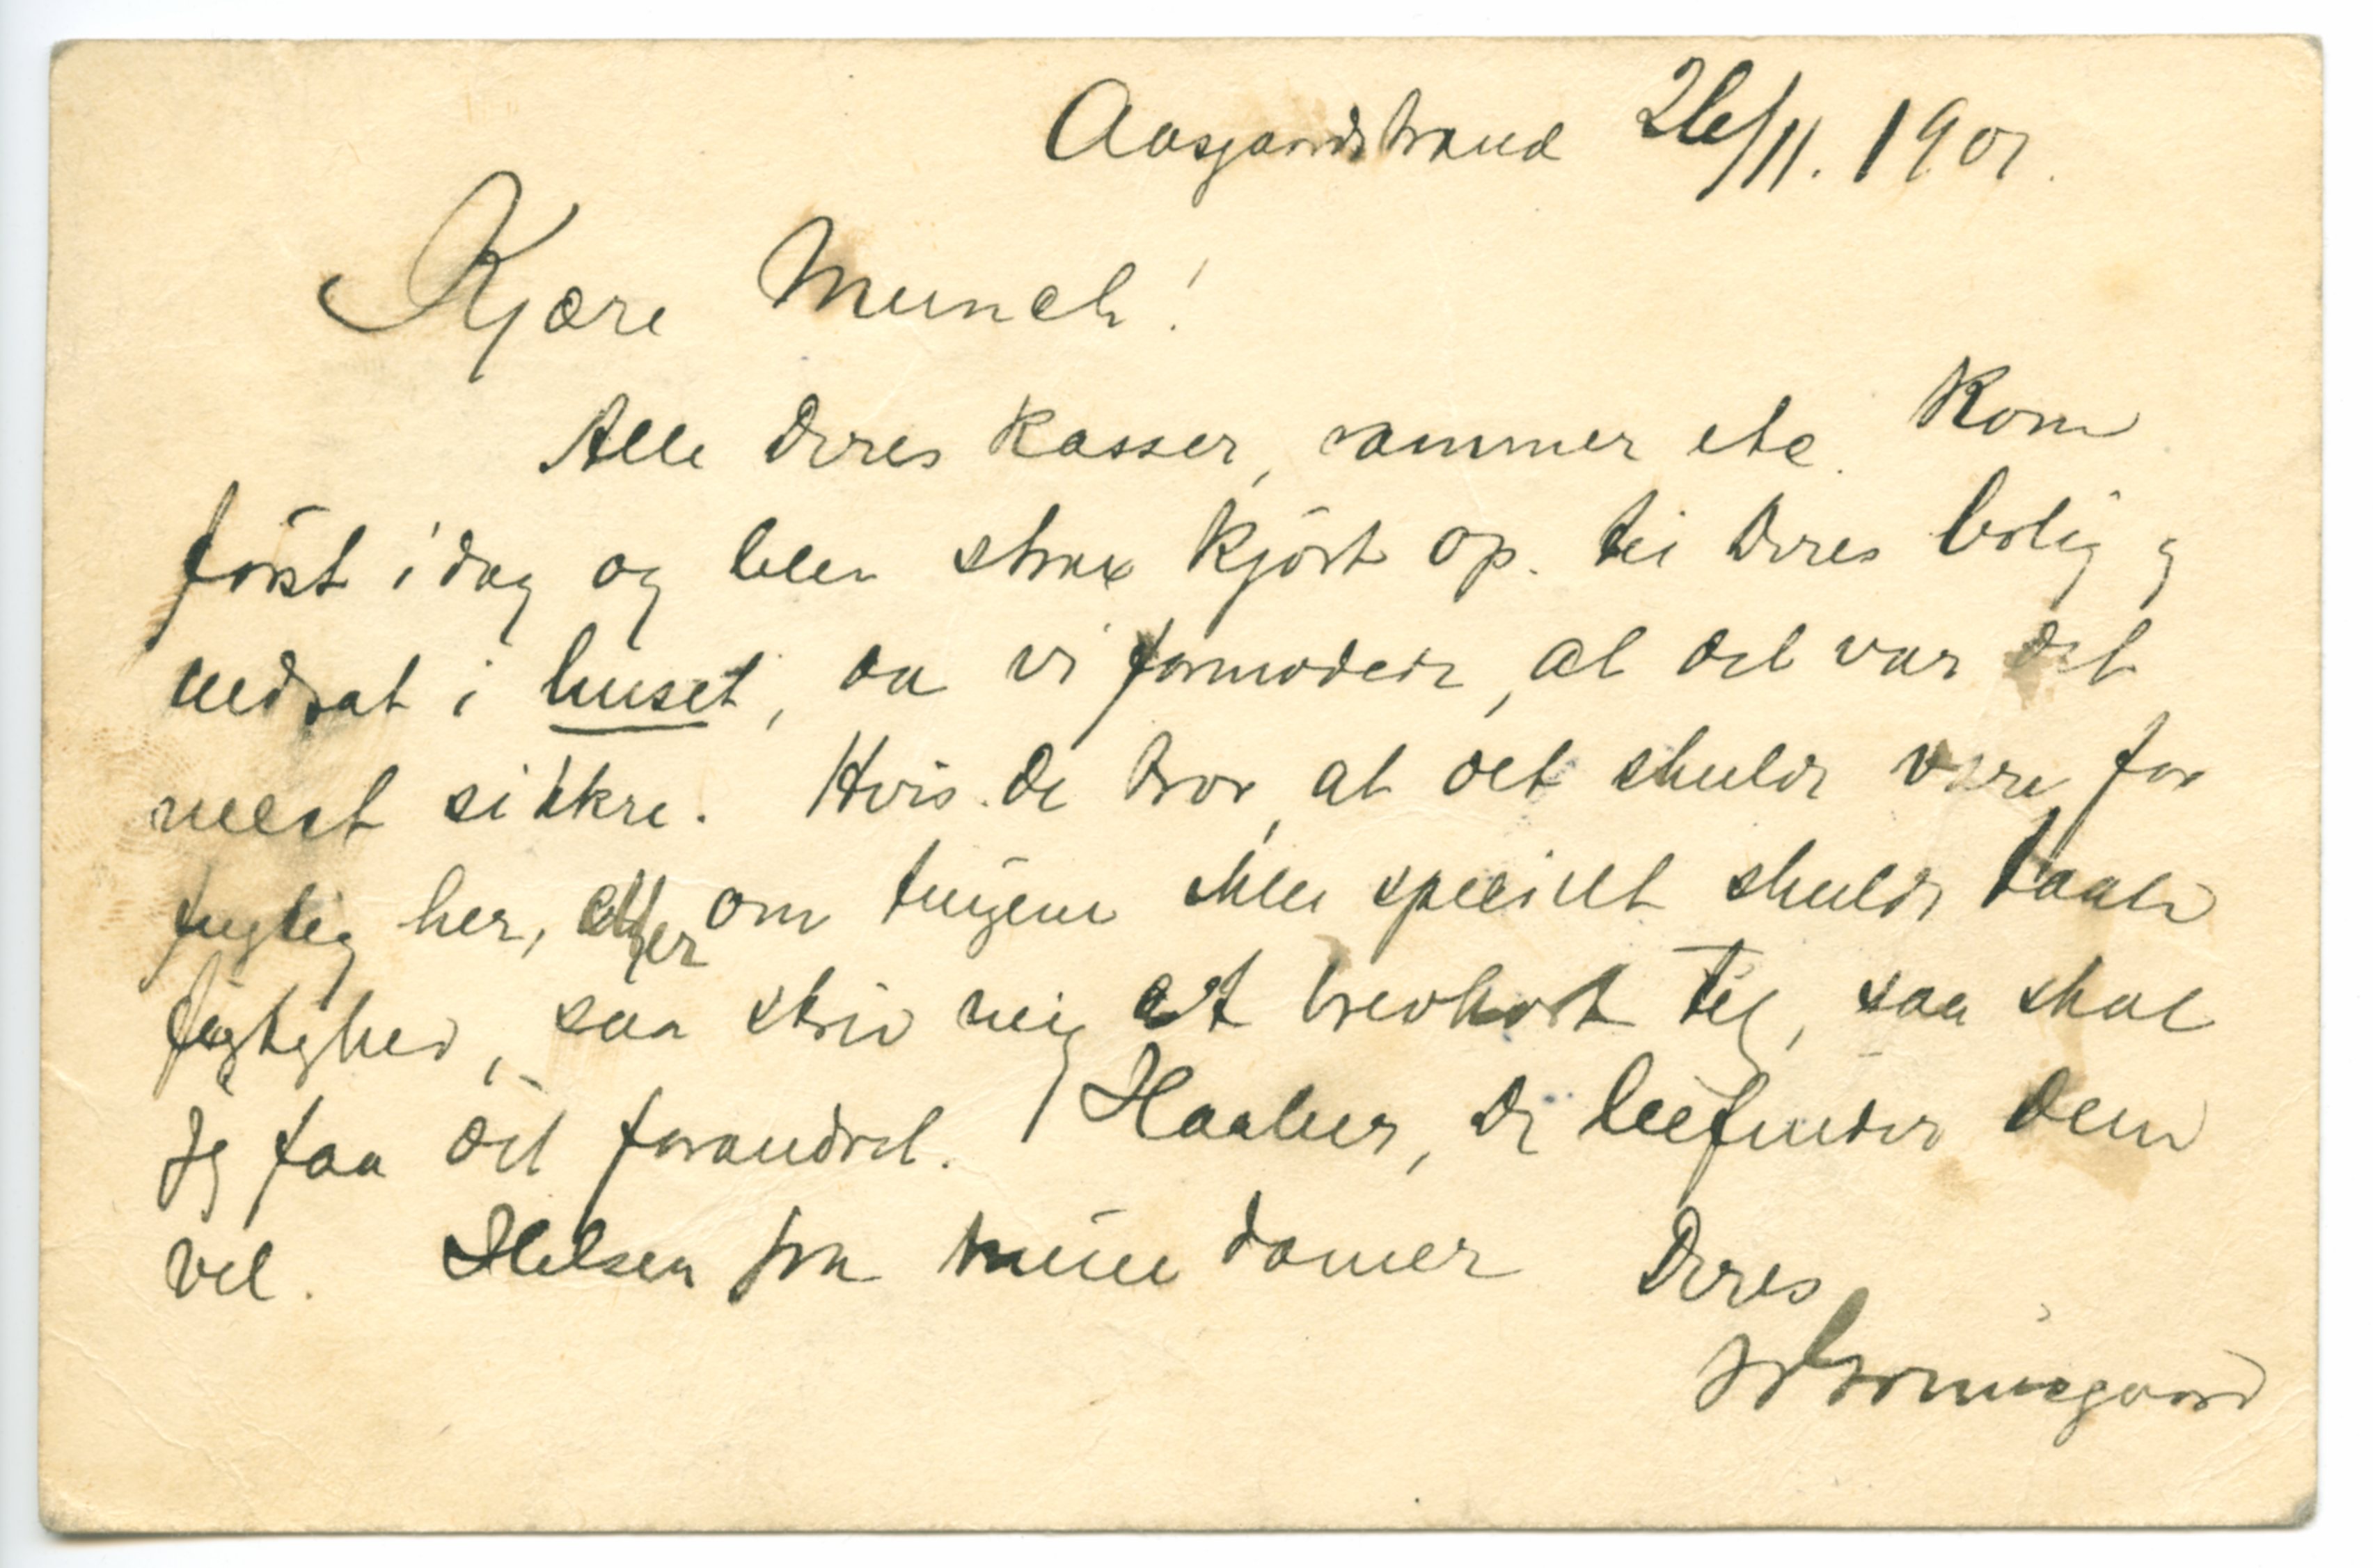 Aasgaardstrand 26/11. 1901.
Kjære Munch!
Alle Deres kasser, rammer etc. kom
först idag og blev strax kjört op til Deres bolig og
nedsat i huset, da vi formodede, at det var det
mest sikkre. Hvis De tror, at det skulde være for
fugtig her, eller om tingene ikke specielt skulde taale
fugtighed, saa skriv mig et brevkort til, saa skal
jeg faa det forandret. Haaber, De befinder Dem
vel. Hilsen fra mine damer Deres